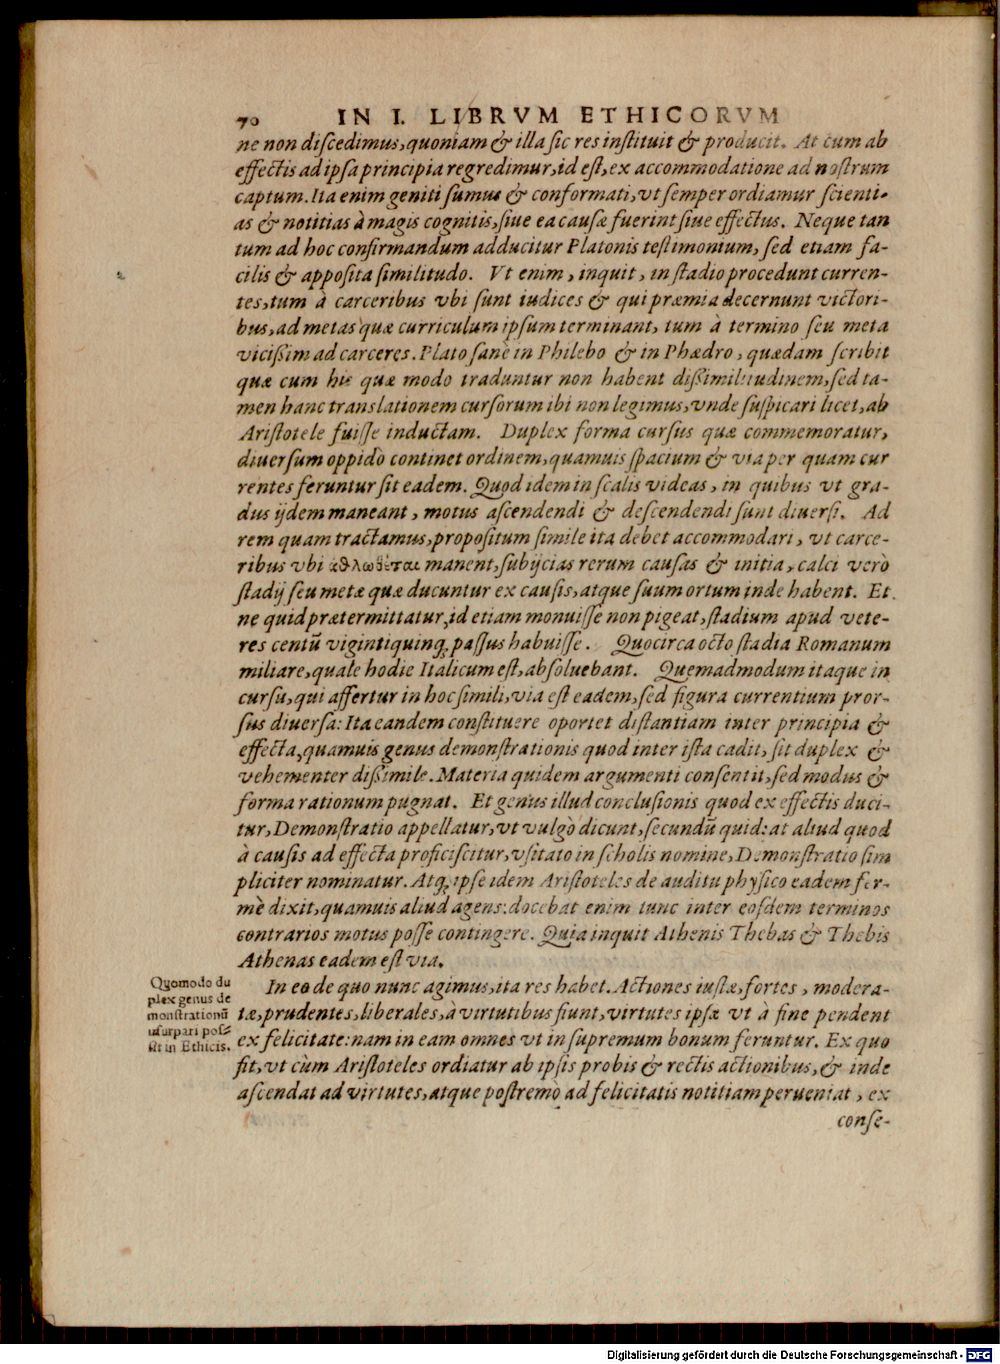 70 IN I. LIBRVM ETHICORVM
ne non discedimus, quoniam & illa sic res instituit & producit. At cum ab
effectis ad ipsa principia regredimur, id est, ex accommodatione ad nostrum
captum. Ita enim geniti sumus & conformati, vt semper ordiamur scienti-
as & notitias à magis cognitis, siue ea causæ fuerint siue effectus. Neque tan
tum ad hoc confirmandum adducitur Platonis testimonium, sed etiam fa-
cilis & apposita similitudo. Vt enim, inquit, in stadio procedunt curren-
tes, tum à carceribus vbi sunt iudices & qui præmia decernunt victori-
bus, ad metas quæ curriculum ipsum terminant, tum à termino seu meta
vicißim ad carceres. Plato sanè in Philebo & in Phædro, quædam scribit
quæ cum his quæ modo traduntur non habent dißimilitudinem, sed ta-
men hanc translationem cursorum ibi non legimus, vnde suspicari licet, ab
Aristotele fuisse inductam. Duplex forma cursus quæ commemoratur,
diuersum oppidò continet ordinem, quamuis spacium & via per quam cur
rentes feruntur sit eadem. Quod idem in scalis videas, in quibus vt gra-
dus ijdem maneant, motus ascendendi & descendendi sunt diuersi. Ad
rem quam tractamus, propositum simile ita debet accommodari, vt carce-
ribus vbi ἀθλωθέται manent, subijcias rerum causas & initia, calci verò
stadij seu metæ quæ ducuntur ex causis, atque suum ortum inde habent. Et
ne quid prætermittatur, id etiam monuisse non pigeat, stadium apud vete-
res centũ vigintiquinq; passus habuisse. Quocirca octo stadia Romanum
miliare, quale hodie Italicum est, absoluebant. Quemadmodum itaque in
cursu, qui affertur in hoc simili, via est eadem, sed figura currentium pror-
sus diuersa: Ita eandem constituere oportet distantiam inter principia &
effecta, quamuis genus demonstrationis quod inter ista cadit, sit duplex &
vehementer dißimile. Materia quidem argumenti consentit, sed modus &
forma rationum pugnat. Et genus illud conclusionis quod ex effectis duci-
tur, Demonstratio appellatur, vt vulgò dicunt, secundũ quid: at aliud quod
à causis ad effecta proficiscitur, vsitato in scholis nomine, Demonstratio sim
pliciter nominatur. Atq; ipse idem Aristoteles de auditu physico eadem fer-
mè dixit, quamuis aliud agens: docebat enim tunc inter eosdem terminos
contrarios motus posse contingere. Quia inquit Athenis Thebas & Thebis
Athenas eadem est via.
Quomodo du
plex genus de
monstrationũ
usurpari pos=
sit in Ethicis.
In eo de quo nunc agimus, ita res habet. Actiones iustæ, fortes, modera-
tæ, prudentes, liberales, à virtutibus fiunt, virtutes ipsæ vt à fine pendent
ex felicitate: nam in eam omnes vt in supremum bonum feruntur. Ex quo
fit, vt cùm Aristoteles ordiatur ab ipsis probis & rectis actionibus, & inde
ascendat ad virtutes, atque postremò ad felicitatis notitiam perueniat, ex
conse-
Digitalisierung gefördert durch die Deutsche Forschungsgemeinschaft - DFG